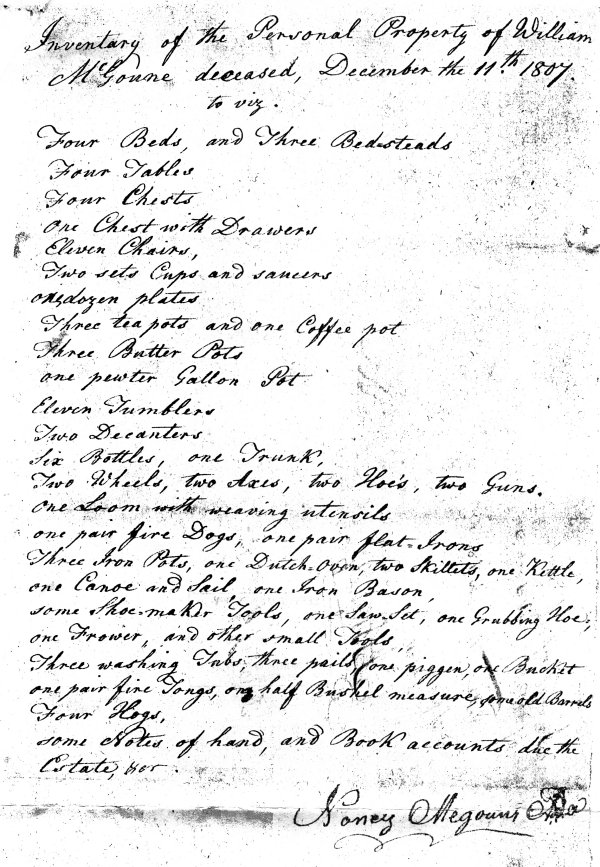 Inventary of the Personal Property of William
McGoune deceased, December the 11th. 1807.
to viz.
Four Beds, and Three Bedsteads
Four Tables
Four Chests
one Chest with Drawers
Eleven Chairs,
Two sets Cups and saucers
one dozen plates
Three tea pots and one Coffee pot
Three Butter Pots
one pewter Gallon Pot
Eleven Tumblers
Two Decanters
Six Bottles, one Trunk,
Two Wheels, two Axes, two Hoe's, two Guns.
one Loom with weaving utensils
one pair fire Dogs, one pair flat-Irons
Three Iron Pots, one Dutch-Oven, two Skillets, one Kettle,
one Canoe and Sail, one Iron Bason,
some Shoe-maker Tools, one Saw Set, one Grubbing Hoe,
one Frower, and other small Tools,
Three washing Tubs, three pails, one piggen, one Bucket
one pair fire Tongs, one half Bushel measure, some old Barrels
Four Hogs,
some Notes of hand, and Book accounts due the
Estate,
Noncy Megouns